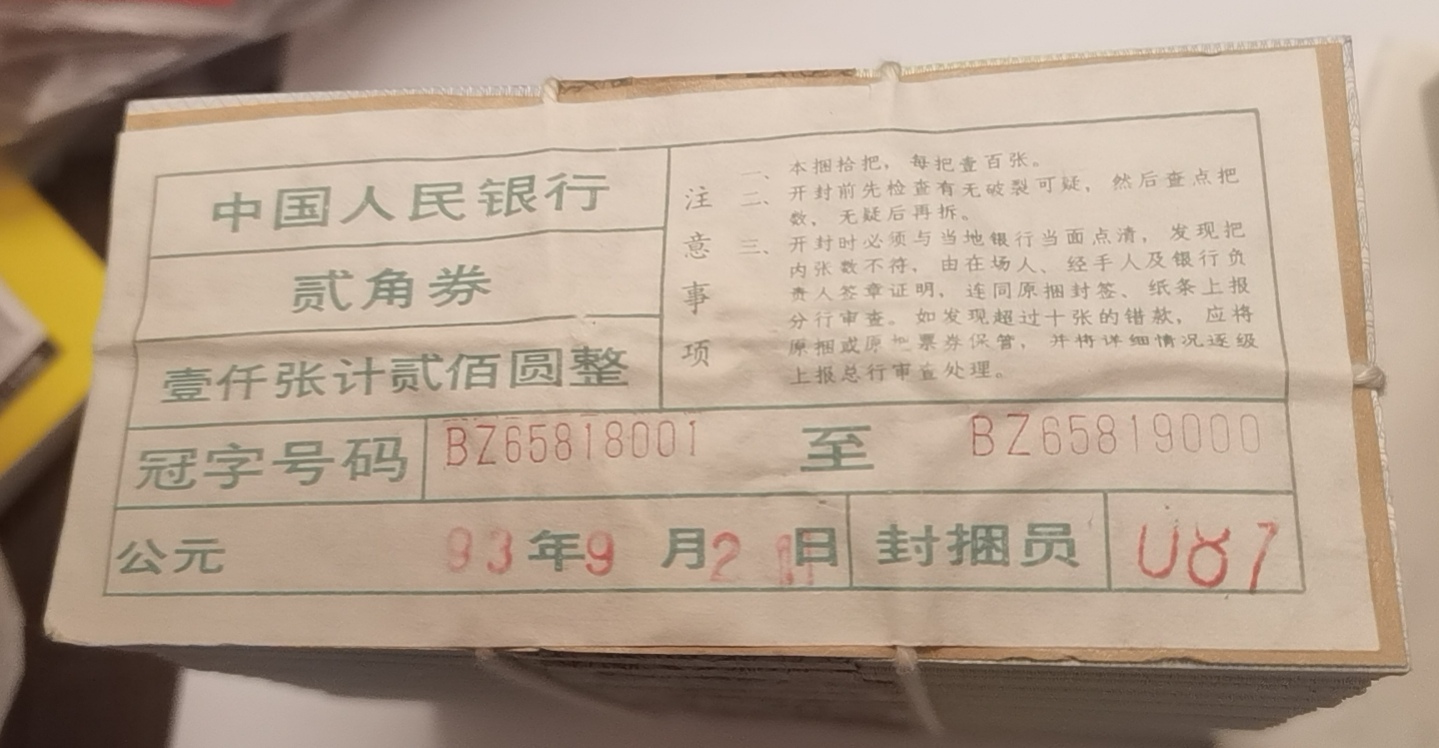 中国人民银行
贰角券
壹仟张计贰佰圆整
注意事项
一、本捆拾把，每把壹百张。
二、开封前先检查有无破裂可疑，然后查点把
数，无疑后再拆。
三、开封时必须与当地银行当面点清，发现把
内张数不符，由在场人、经手人及银行负
责人签章证明，连同原捆封签、纸条上报
分行审查。如发现超过十张的错款，应将
原捆或原把票券保管，并将详细情况逐级
上报总行审查处理。
冠字号码 BZ65818001 至 BZ65819000
公元 93年9月21日 封捆员 087